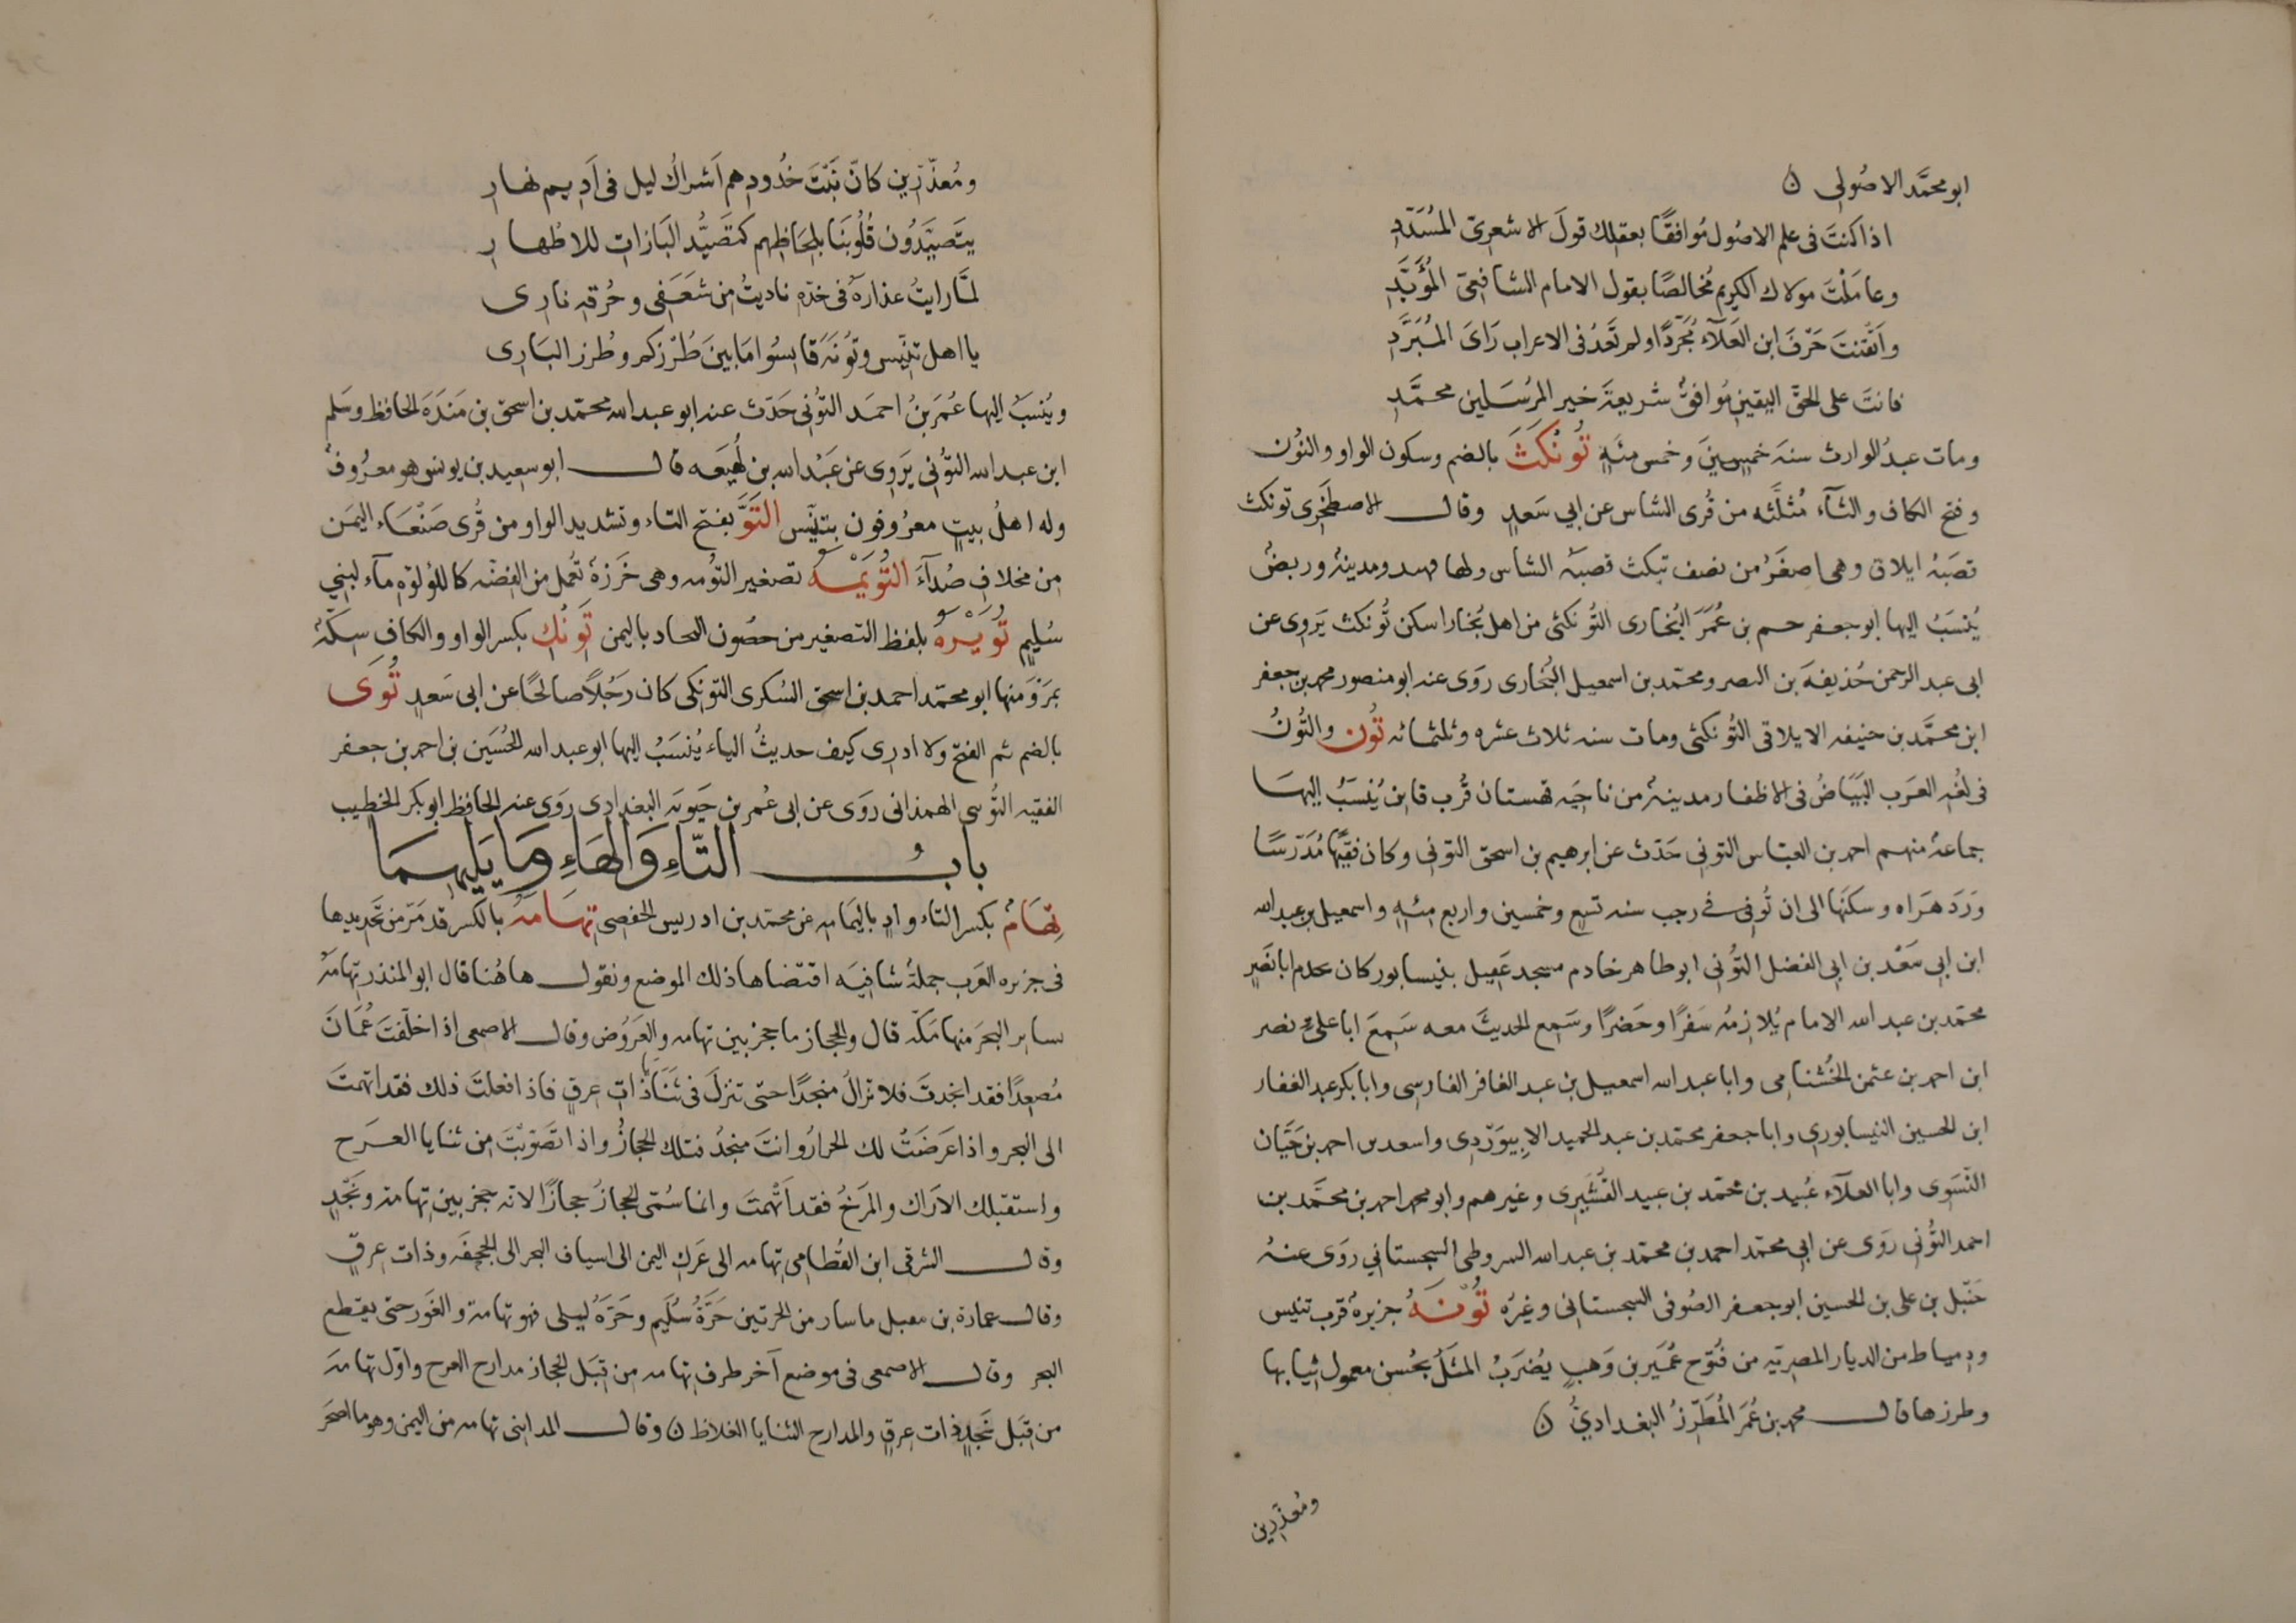 ابو محمَّد الاصُولى ن
اذا كنتَ فى علم الاصُول مُوافقًا بعقلك قولَ الاشعرىّ المُسَدَّدِ
وعاملْتَ مولاك الكريم مُخالصًا بقول الامام الشافعىّ المُؤَيَّدِ
واَتْقنتَ حَرْفَ ابن العَلآءِ مُجَرَّدًا ولم تَعْدُ فى الاعراب رَاىَ المُبَرَّدِ
فانتَ على الحقّ اليقين مُوافقٌ شريعةَ خير المرُسَلين محمَّدِ
ومات عبدُ الوارث سنهَ خمسينَ وخمس مئَهٍ تُونكَثَ بالضم وسكون الواو والنُون
وفتح الكاف والثآءُ مُثلَّثه من قُرى الشاس عن ابي سَعدٍ وقال الاصطَخرى تونكث
قصَبهُ ايلاق وهى اصغَرُ من نصف تبكث قصبهُ الشاس ولها ومدينهُ وربضُ
يُنسَبُ اليها ابو جعفر حم بن عُمَرَ البُخارى التُونكثى من اهل بُخارا سكن تُونكث يَروِى عن
ابى عبد الرحمن حُذيفهَ بن النصر ومحمّد بن اسمعيل البُخارى روَى عنه ابو منصور محمد بن جعفر
ابن محمَّد بن حنيفه الايلاقى التُونكثى ومات سنه ثلاث عشره وثلثمائه تُون والنُونُ
فى لغُهِ العَرَب البيَاضُ فى الاظفار مدينهُ من ناحِيَه قهستان قُرب قاين يُنسَبُ اليهَا
جماعهُ منهم احمد بن العبّاس التونى حَدّث عن ابرهيم بن اسحق التونى وكان فقيهًا مُدَرّسًا
وَرَدَ هَرَاه وسكنَها الى ان تُوفى فى رجب سنه تسعٍ وخمسين واربع مئهٍ واسمعيل بن عبد الله
ابن ابى سَعْد بن ابى الفضل التُونى ابو طاهر خادم مسجد عَقيل بنيسابور كان ابا نَصْرٍ
محمّد بن عبد الله الامام يُلازِمُه سَفرًا وحَضرًا وسَمِعَ الحديثَ معه سَمِعَ ابا على نصر
ابن احمد بن عثمن الخُشنامى وابا عبد الله اسمعيل بن عبد الغافر الفارسى وابا بكر عبد الغفار
ابن الحسين النيسابورى وابا جعفر محمّد بن عبد الحميد الابِيوَرْدِى واسعد بن احمد بن حَيَّان
النَّسَوى وابا العلآء عُبيد بن محمّد بن عبيد القُشَيرى وغيرهم وابو محمد احمد بن محمَّد بن
احمد التُونى روَى عن ابى محمّد احمد بن محمّد بن عبد الله السروطى السجستاني روَى عنهُ
حَنبل بن على بن الحسين ابو جعفر الصُوفى السجستانى وغيرُه تُونَهُ جزيرهُ قرب تنيس
ودمياط من الديار المصريّه من فُتوح عُمَير بن وَهبٍ يُضرَبُ المثَلُ بحُسن معمول ثيابها
وطرزها قال محمد بن عُمَرَ المُطَرّزُ البغداديُّ ن
ومُعذّرِين
ومُعذّرِين كانّ نَبْتَ خُدودِهم اَشراكُ ليل فى اَدِيم نهارِ
يتَصيَّدُون قُلُوبَنَا بلِحَاظِهم كتَصَيُّد البَازاتِ للاطيارِ
لمّا رايتُ عذارهُ فى خدّه ناديتُ من شعَفى وحُرقهِ نارى
يا اهل تنّيس وتُونَهَ قايسُوا مَا بينَ طُرْزكم وطُرز البَارِى
ويُنسَبُ اليها عُمَرَ بنُ احمَد التُونى حَدّث عنه ابو عبد الله محمّد بن اسحق بن مَندَهَ الحافظ وسَلم
ابن عبد الله التُونى يَروِى عن عَبْد الله بن لهُيعَه قال ابو سعيد بن يونس هو معرُوفٌ
وله اهلُ بيتٍ معرُوفون بتنيّس التَّوُّ بفتح التاء وتشديد الواو من قُرى صَنْعَاء اليمَن
من مخلافِ صُدآءَ التُوَيْمَهُ تصغير التوُمه وهى خَرَزةُ تُعمل من الفضّه كاللُؤلؤهِ مآء لبَني
سُليمٍ تُوَيْرَهُ بلفظ التصغير من حصُون النجاد باليمن تَوِنُك بكسر الواو والكاف سِكّهُ
بمَرْوَ منها ابو محمّد احمد بن اسحق السُكرى التونِكى كان رَجُلاً صالحًا عن ابى سَعدٍ تُوَى
بالضم ثم الفتح ولا ادرى كيف حديثُ الياء يُنسَبُ اليها ابو عبد الله الحُسَين بن احمد بن جعفر
الفقيه التُوىى الهمذانى روَى عن ابى عُمر بن حَيويَه البغدادى روَى عنه الحافظ ابو بكر الخطيب
بابُ التّاءِ وَالهَاءِ وَمَا يَلِيهِمَا
تِهَامُ بكسر التاء وادٍ باليَمامه عن محمّد بن ادريس الحفصى تِهَامَهُ بالكسر قد مَرّ من تحديدها
فى جزيره العَرب جملهُ شافيَه اقتضاها ذلك الموضع ونقول هاهُنا قال ابو المنذر تِهامهُ
ساير البحَر منها مَكّه قال والحجاز ما حجز بين تهامه والعَرُوض وقال الاصمعى اذا خلّفتَ عُمَانَ
مُصعِدًا فقد انجدتَ فلا تزالُ منجدًا حتى تنزلَ فى ثَنَايَا ذات عرقٍ فاذا فعلتَ ذلك فقد اتهمتَ
الى البحر واذا عَرَضَتْ لك الحرارُ وانتَ منجدُ فتلك الحجازُ واذا تصَوّبْتَ من ثنايا العَرج
واستقبلك الارَاك والمَرخُ فقد اَتْهمتَ وانما سُمّى الحجازُ حجازًا لانه حجز بين تِهامه ونَجْدٍ
وقال الشرقى ابن القُطامى تِهامه الى عَرِك اليمن الى اسياف البحر الى الجحفَه وذات عِرقٍ
وقال عمارة بن عقيل ما سار من الحرتين حَرَّةُ سُلَيم وحَرّهُ ليلى فهو تهامة والغَور حتى يقطع
البحر وقال الاصمعى فى موضع آخر طرف تهامه من قِبَل الحجاز مدارج العرج واوّل تهامهَ
من قِبَل نَجْدٍ ذات عرقٍ والمدارج الثنايا الغلاظ ن وقال المداينى تهامه من اليمن وهو ما اصحَر